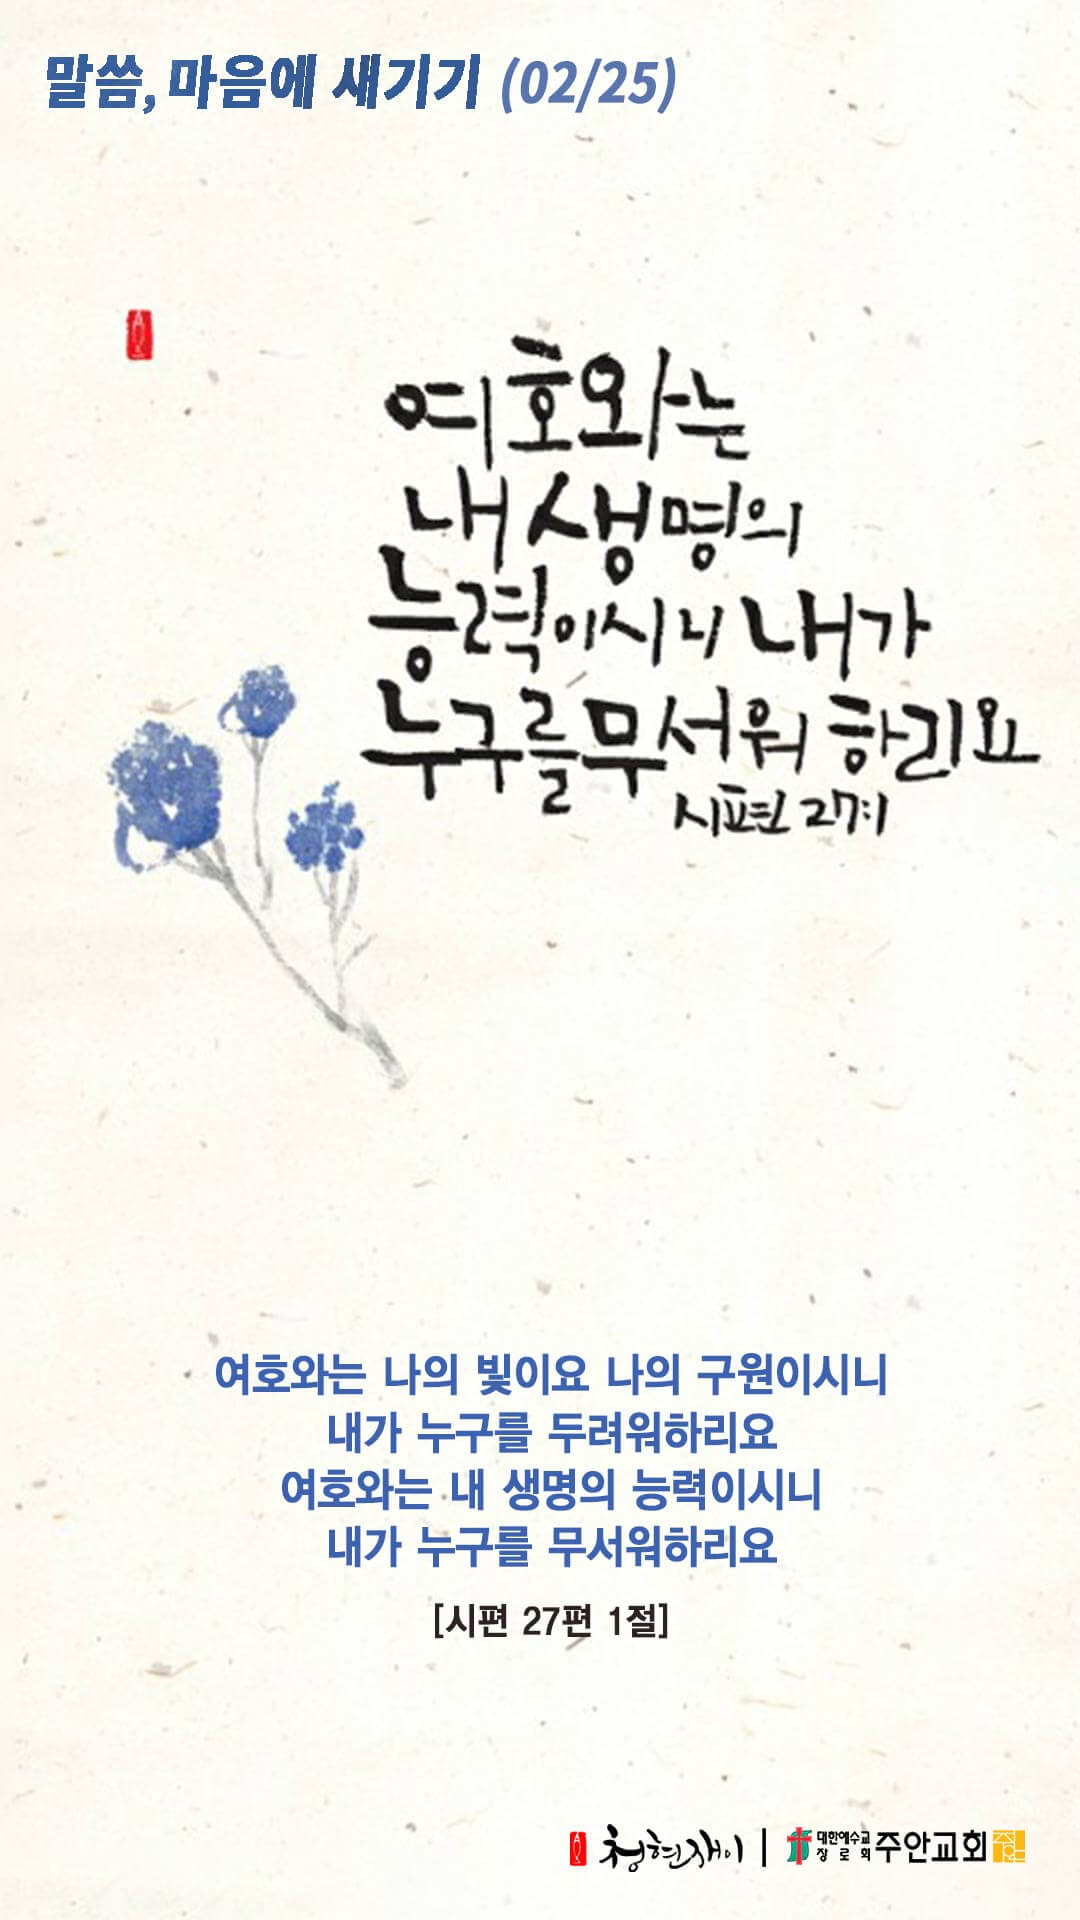 말씀, 마음에 새기기 (02/25)
여호와는
내 생명의
능력이시니 내가
누구를 무서워 하리요
시편 27:1
여호와는 나의 빛이요 나의 구원이시니
내가 누구를 두려워하리요
여호와는 내 생명의 능력이시니
내가 누구를 무서워하리요
[시편 27편 1절]
청현재이 | 대한예수교장로회 주안교회